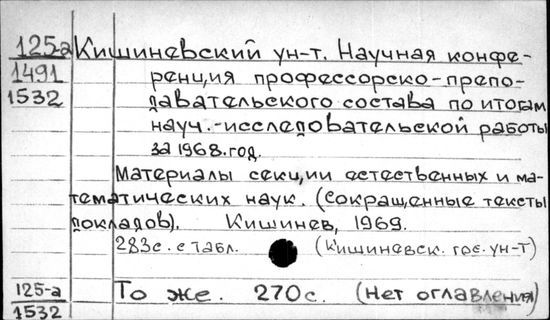 125-а Кишиневский ун-т. Научная конфе-
1491 ренция профессорско-препо-
1532 давательского состава по итогам
науч.-исследовательской работы
за 1968 год.
Материалы секции естественных и ма-
тематических наук. (Сокращенные тексты
докладов). Кишинев, 1969.
283с. с табл. (Кишиневск. гос. ун-т)
125-а То же. 270с. (Нет оглавления)
1532